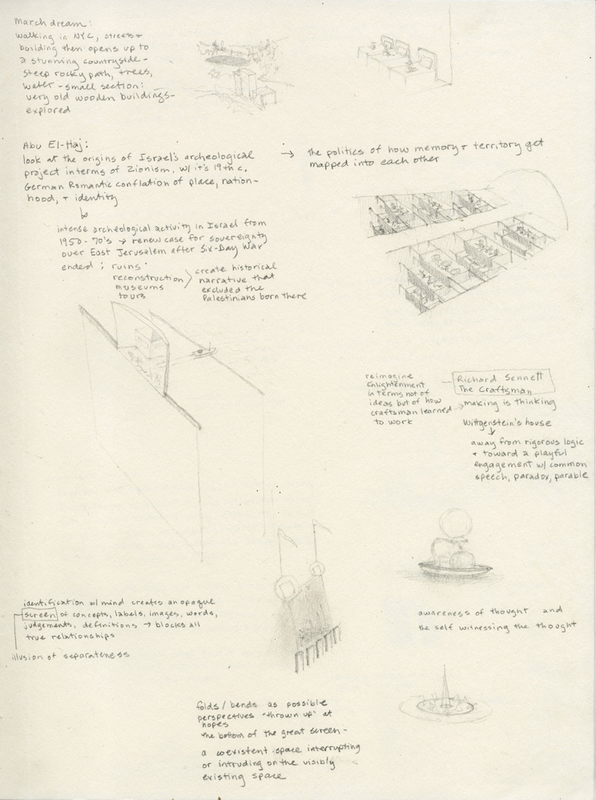 March dream:
walking in NYC, street +
building then opens up to
a stunning countryside -
steep rocky path, trees,
water - small section:
very old wooden buildings -
explored
Abu El-Haj:
look at the origins of Israel's archeological
project in terms of Zionism, w/ it's 19th c,
German Romantic conflation of place, nation-
hood, + identity
→ the politics of how memory + territory get
mapped into each other
intense archeological activity in Israel from
1950-70's → renew case for sovereignty
over East Jerusalem after Six-Day War
ended; ruins
reconstruction
museums
tours
create historical
narrative that
excluded the
Palestinians born there
reimagine
Enlightenment
in terms not of
ideas but of how
craftsman learned
to work
Richard Sennett
The Craftsman
making is thinking
Wittgenstein's house
↓
away from rigorous logic
+ toward a playful
engagement w/ common
speech, paradox, parable
identification w/ mind creates an opaque
screen of concepts, labels, images, words,
judgements, definitions → blocks all
true relationships
illusion of separateness
awareness of thought and
the self witnessing the thought
folds / bends as possible
perspectives "thrown up" at
hopes
the bottom of the great screen -
a coexistent space interrupting
or intruding on the visibly
existing space